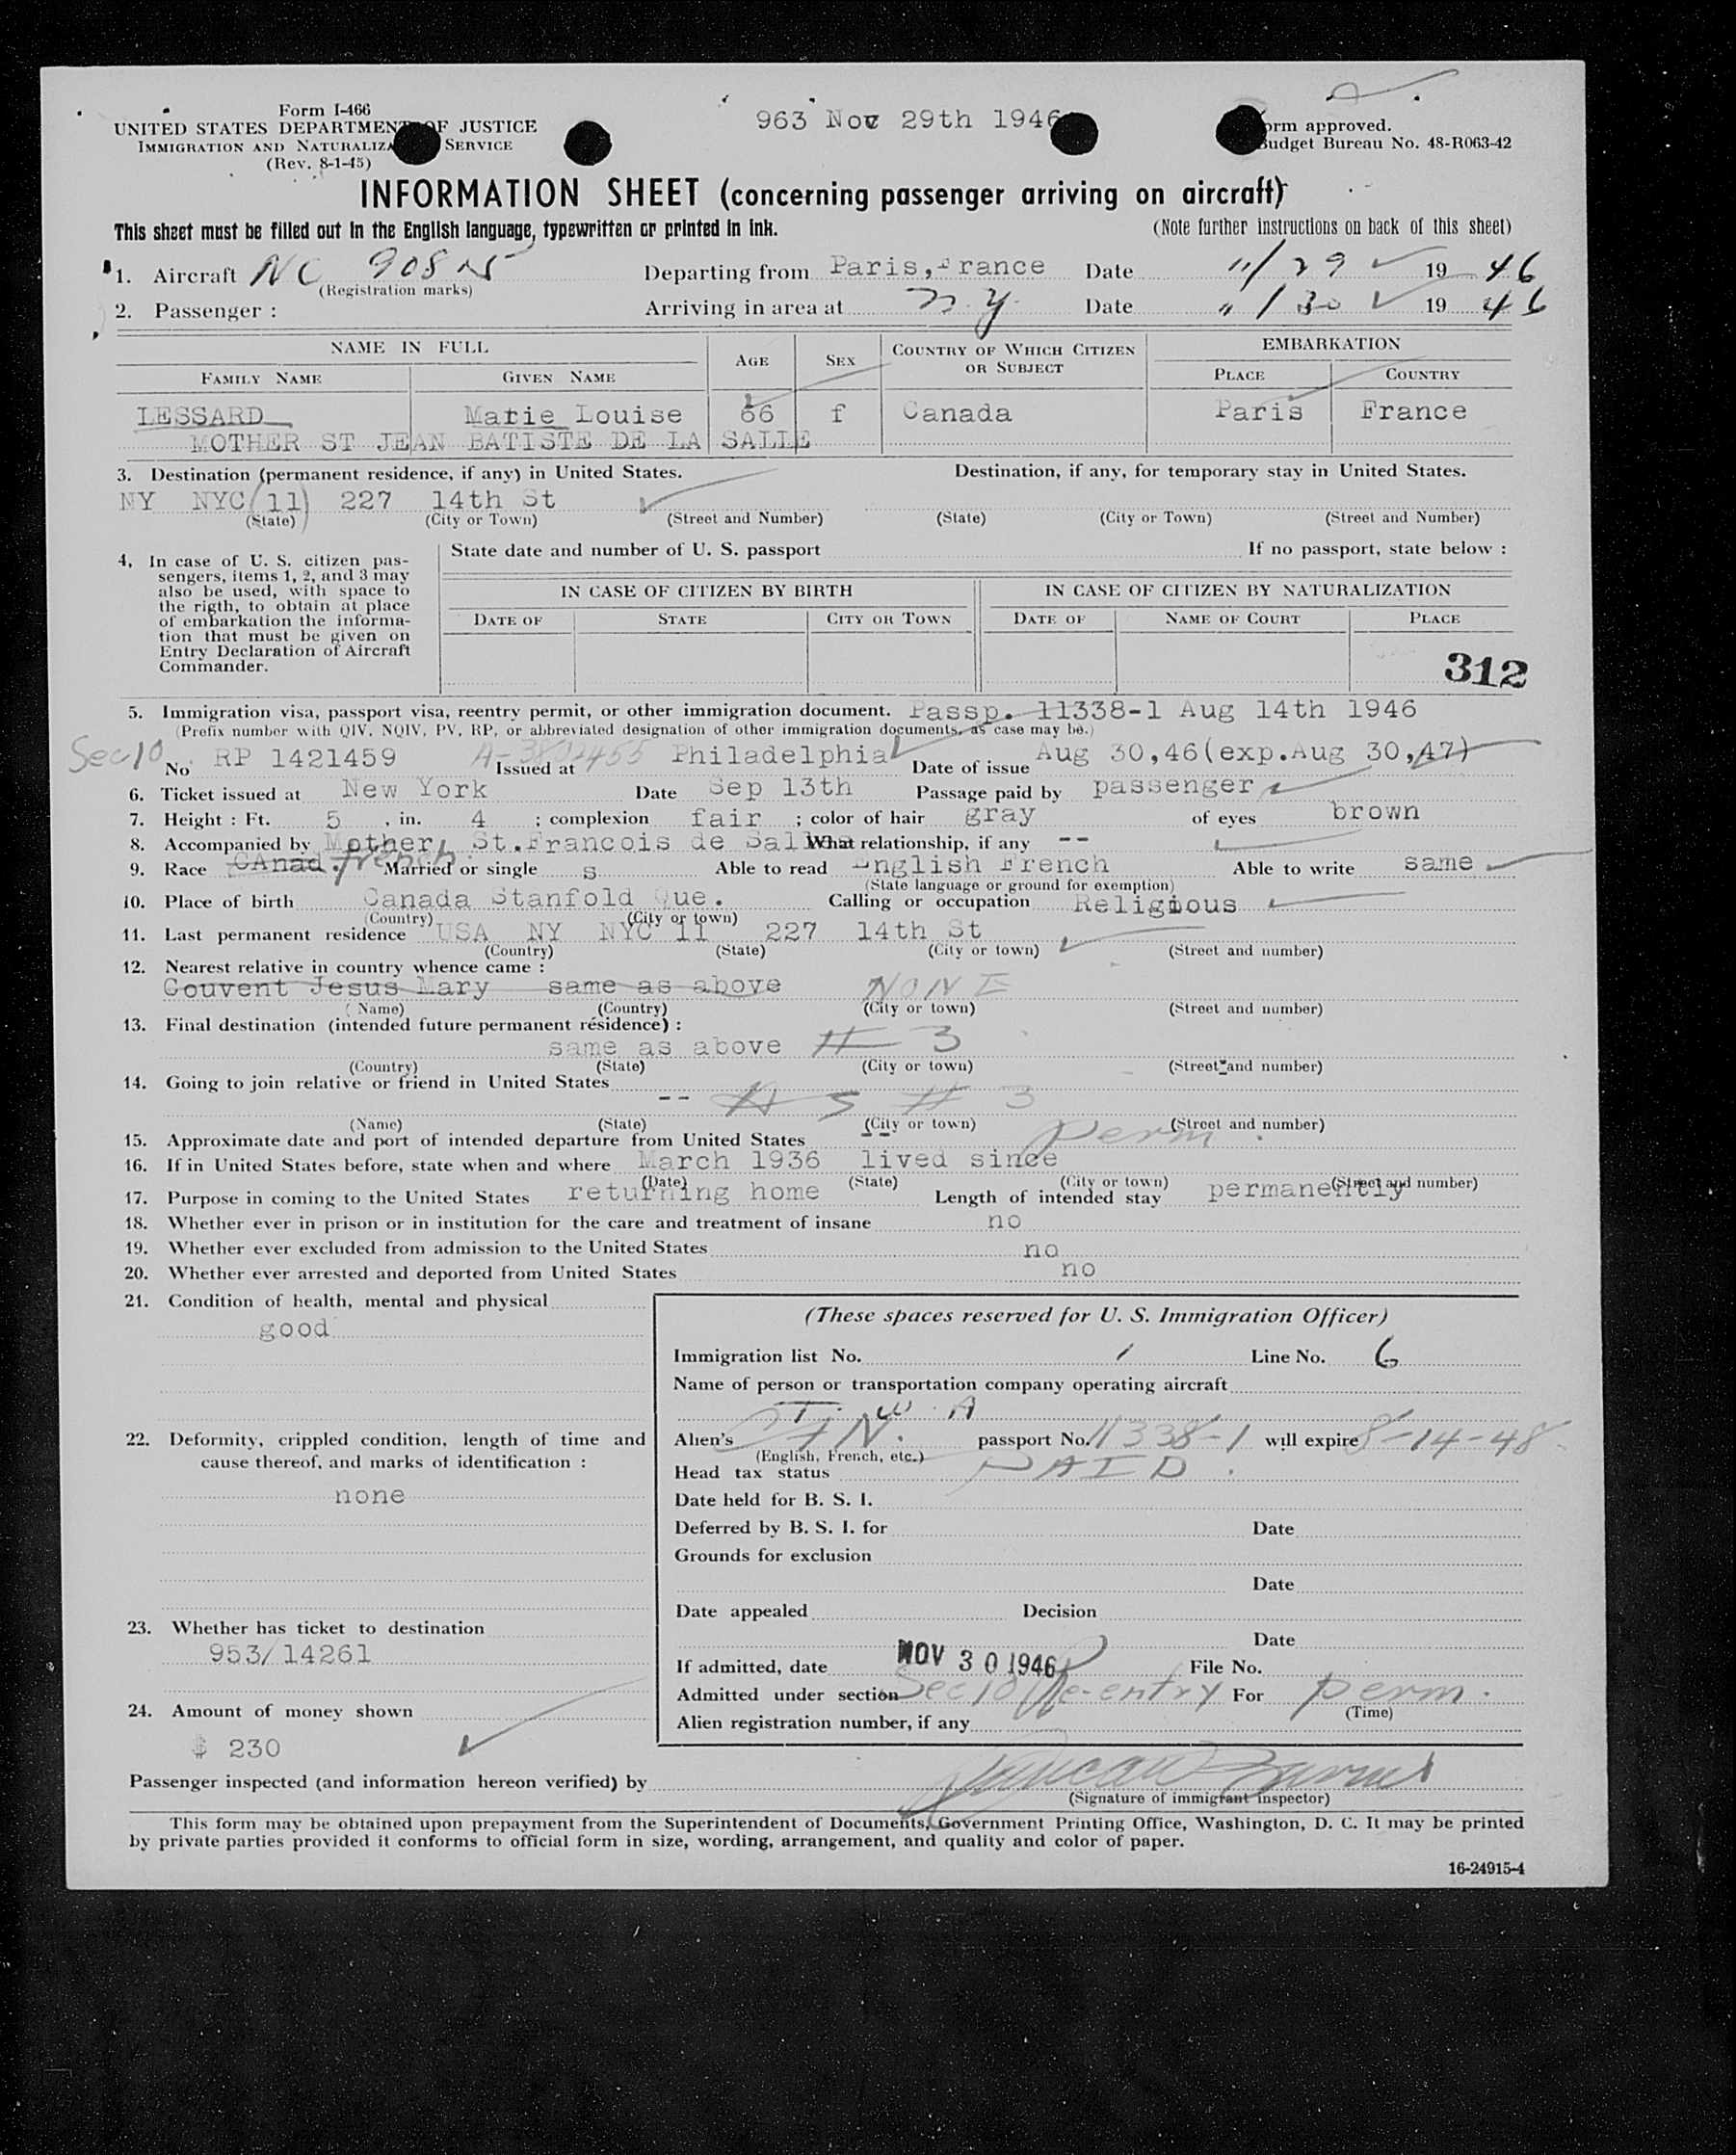 Form I-466
UNITED STATES DEPARTMENT OF JUSTICE
IMMIGRATION AND NATURALIZA SERVICE
(Rev. 8-1-45)
963 Nov 29th 1946
orm approved.
Budget Bureau No. 48-R063-42
INFORMATION SHEET (concerning passenger arriving on aircraft)
This sheet must be filled out in the English language, typewritten or printed in ink. (Note further instructions on back of this sheet)
1. Aircraft NC 908 Departing from Paris, France Date 11/29 1946
(Registration marks)
2. Passenger : Arriving in area at N.Y. Date 11/30 1946
NAME IN FULL AGE SEX COUNTRY OF WHICH CITIZEN OR SUBJECT EMBARKATION
FAMILY NAME GIVEN NAME PLACE COUNTRY
LESSARD Marie Louise 66 f Canada Paris France
MOTHER ST JEAN BATISTE DE LA SALLE
3. Destination (permanent residence, if any) in United States. Destination, if any, for temporary stay in United States.
NY NYC(11) 227 14th St
(State) (City or Town) (Street and Number) (State) (City or Town) (Street and Number)
4. In case of U. S. citizen pas-
sengers, items 1, 2, and 3 may
also be used, with space to
the rigth, to obtain at place
of embarkation the informa-
tion that must be given on
Entry Declaration of Aircraft
Commander.
State date and number of U. S. passport If no passport, state below :
IN CASE OF CITIZEN BY BIRTH IN CASE OF CITIZEN BY NATURALIZATION
DATE OF STATE CITY OR TOWN DATE OF NAME OF COURT PLACE
312
5. Immigration visa, passport visa, reentry permit, or other immigration document. Passp. 11338-1 Aug 14th 1946
(Prefix number with QIV, NQIV, PV, RP, or abbreviated designation of other immigration documents, as case may be.)
Sec 10 No RP 1421459 Issued at Philadelphia Date of issue Aug 30,46(exp.Aug 30,47)
6. Ticket issued at New York Date Sep 13th Passage paid by passenger
7. Height : Ft. 5 , in. 4 ; complexion fair ; color of hair gray of eyes brown
8. Accompanied by Mother St.Francois de Salles What relationship, if any --
9. Race CAnad. French Married or single s Able to read English French Able to write same
(State language or ground for exemption)
10. Place of birth Canada Stanfold Que. Calling or occupation Religious
(Country) (City or town)
11. Last permanent residence USA NY NYC 11 227 14th St
(Country) (State) (City or town) (Street and number)
12. Nearest relative in country whence came :
Couvent Jesus Mary same as above NONE
(Name) (Country) (City or town) (Street and number)
13. Final destination (intended future permanent résidence) :
same as above # 3
(Country) (State) (City or town) (Street and number)
14. Going to join relative or friend in United States
-- AS # 3
(Name) (State) (City or town) (Street and number)
15. Approximate date and port of intended departure from United States -- perm.
16. If in United States before, state when and where March 1936 lived since
(Date) (State) (City or town) (Street and number)
17. Purpose in coming to the United States returning home Length of intended stay permanently
18. Whether ever in prison or in institution for the care and treatment of insane no
19. Whether ever excluded from admission to the United States no
20. Whether ever arrested and deported from United States no
21. Condition of health, mental and physical
good
22. Deformity, crippled condition, length of time and
cause thereof, and marks of identification :
none
23. Whether has ticket to destination
953/14261
24. Amount of money shown
$ 230
(These spaces reserved for U. S. Immigration Officer)
Immigration list No. 1 Line No. 6
Name of person or transportation company operating aircraft
T. W. A
Alien's passport No. 11338-1 will expire 8-14-48
(English, French, etc.)
Head tax status PAID.
Date held for B. S. I.
Deferred by B. S. I. for Date
Grounds for exclusion
Date
Date appealed Decision
Date
If admitted, date NOV 30 1946 File No.
Admitted under section Sec 10 Re-entry For perm.
(Time)
Alien registration number, if any
Passenger inspected (and information hereon verified) by
(Signature of immigrant inspector)
This form may be obtained upon prepayment from the Superintendent of Documents, Government Printing Office, Washington, D. C. It may be printed
by private parties provided it conforms to official form in size, wording, arrangement, and quality and color of paper.
16-24915-4